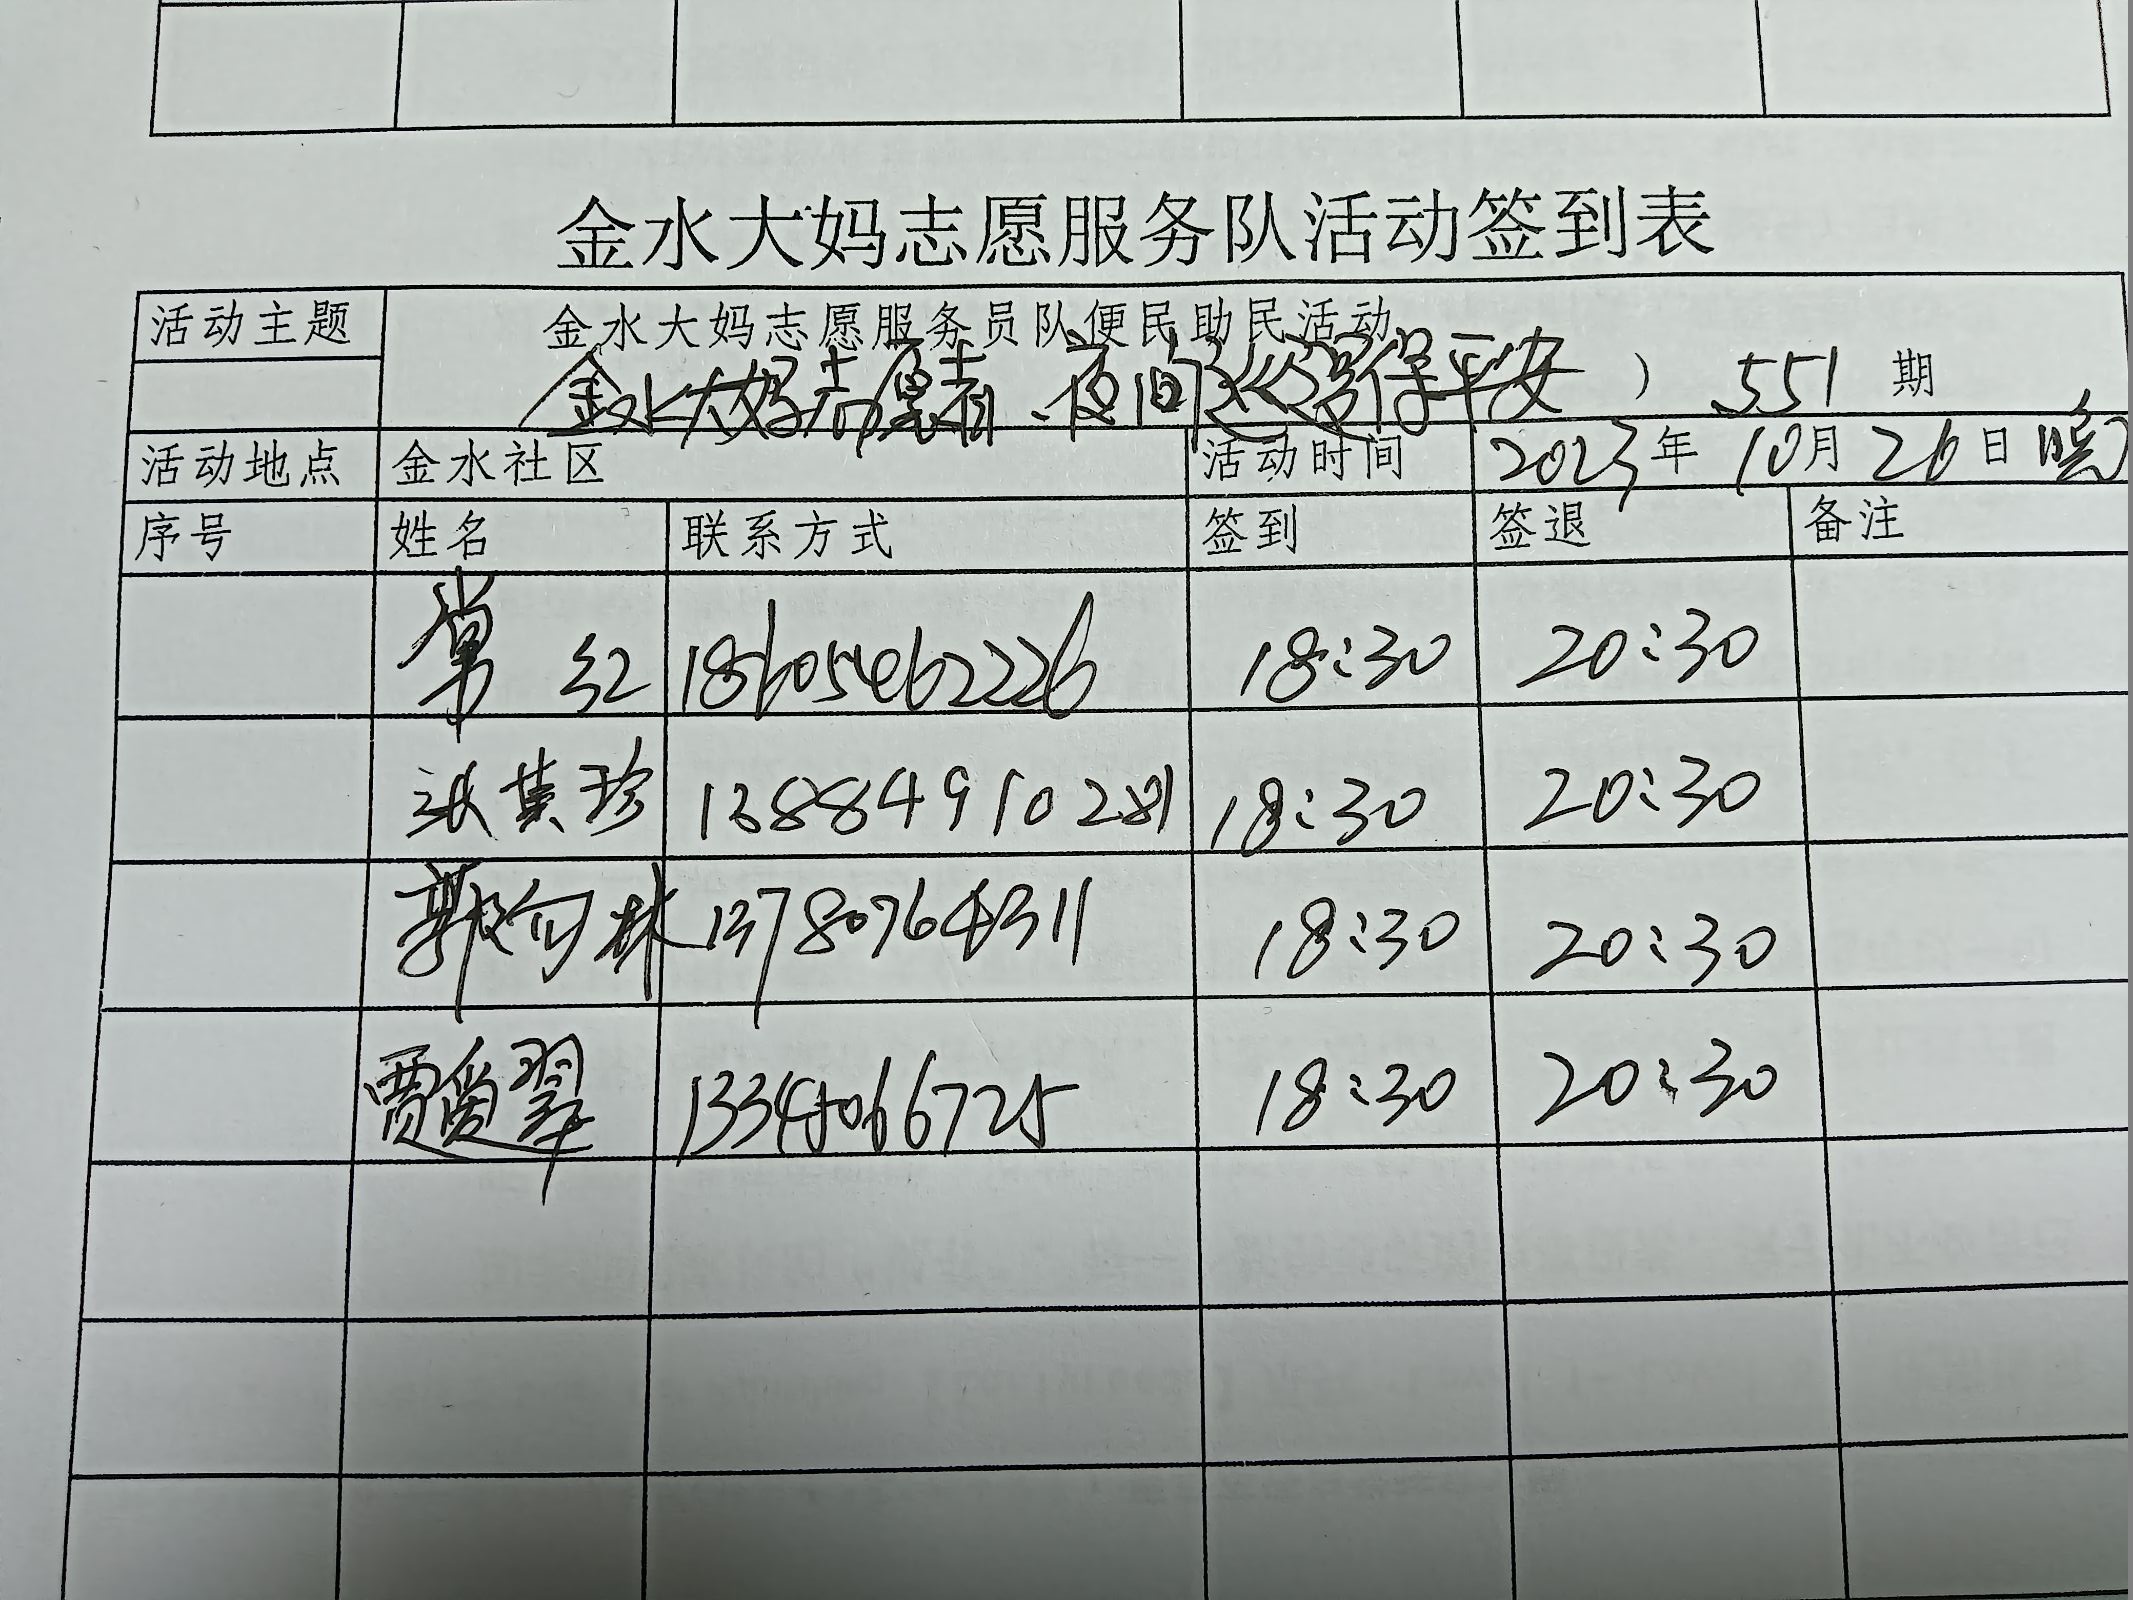 金水大妈志愿服务队活动签到表
活动主题 金水大妈志愿服务员队便民助民活动
金水大妈志愿者、夜间巡逻保平安 ） 551 期
活动地点 金水社区 活动时间 2023年 10月 26日 晚
序号 姓名 联系方式 签到 签退 备注
常红 18605462226 18:30 20:30
张其珍 13884910281 18:30 20:30
郭向林 13780764311 18:30 20:30
贾爱翠 13345066725 18:30 20:30